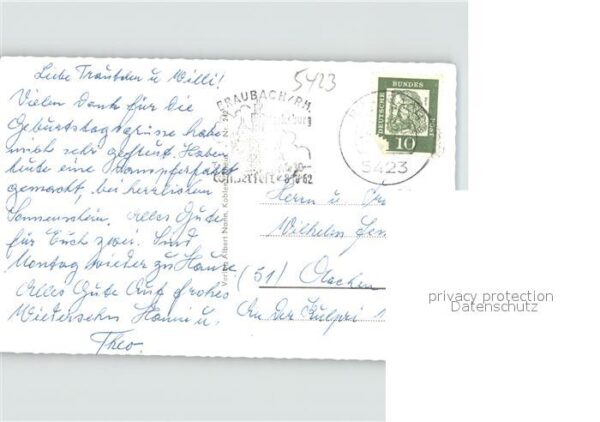 Liebe Träutchen u Willi!
Vielen Dank für die
Geburtstagsgrüsse habe
mich sehr gefreut. Haben
heute eine Dampferfahrt
gemacht, bei herrlichem
Sonnenschein. Alles Gute
für Euch zwei. Sind
Montag wieder zu Hause
Alles Gute Auf frohes
Wiedersehn Hanni u.
Theo.
5423
BRAUBACH/RH.
5423
DEUTSCHE BUNDES POST
10
Verlag Albert Nolin, Koblenz
Herrn u Fr
Wilhelm
(51) Aachen
An der
privacy protection
Datenschutz